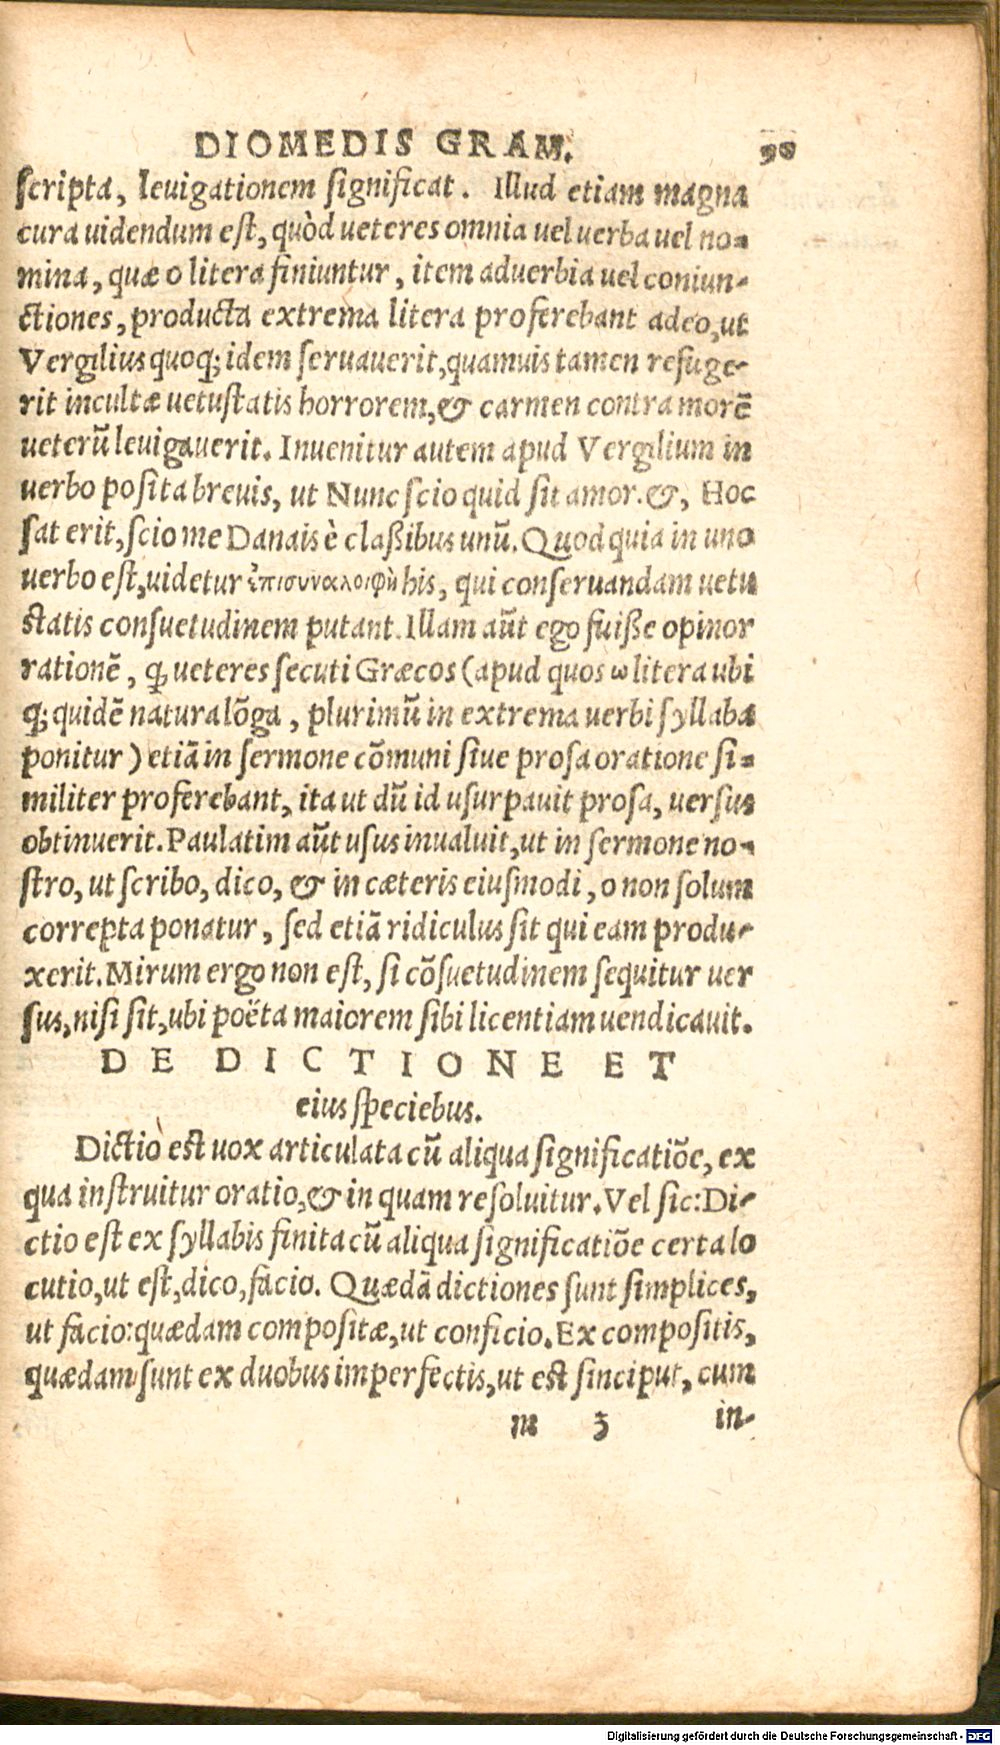 DIOMEDIS GRAM.
scripta, leuigationem significat. Illud etiam magna
cura uidendum est, quòd ueteres omnia uel uerba uel no-
mina, quæ o litera finiuntur, item aduerbia uel coniun-
ctiones, producta extrema litera proferebant adeo, ut
Vergilius quoq; idem seruauerit, quamuis tamen refuge-
rit incultæ uetustatis horrorem, & carmen contra morē
ueterū leuigauerit. Inuenitur autem apud Vergilium in
uerbo posita breuis, ut Nunc scio quid sit amor. &, Hoc
sat erit, scio me Danais è claßibus unū. Quod quia in uno
uerbo est, uidetur ἐπισυναλοιφὴ his, qui conseruandam uetu
statis consuetudinem putant. Illam aūt ego fuiße opinor
rationē, ꝙ ueteres secuti Græcos (apud quos ω litera ubi
q; quidē natura lōga, plurimū in extrema uerbi syllaba
ponitur) etiā in sermone cōmuni siue prosa oratione si-
militer proferebant, ita ut dū id usurpauit prosa, uersus
obtinuerit. Paulatim aūt usus inualuit, ut in sermone no-
stro, ut scribo, dico, & in cæteris eiusmodi, o non solum
correpta ponatur, sed etiā ridiculus sit qui eam produ-
xerit. Mirum ergo non est, si cōsuetudinem sequitur uer
sus, nisi sit, ubi poëta maiorem sibi licentiam uendicauit.
DE DICTIONE ET
eius speciebus.
Dictio est uox articulata cū aliqua significatiōe, ex
qua instruitur oratio, & in quam resoluitur. Vel sic: Di-
ctio est ex syllabis finita cū aliqua significatiōe certa lo
cutio, ut est, dico, facio. Quædā dictiones sunt simplices,
ut facio: quædam compositæ, ut conficio. Ex compositis,
quædam sunt ex duobus imperfectis, ut est sinciput, cum
m 3 in-
Digitalisierung gefördert durch die Deutsche Forschungsgemeinschaft - DFG